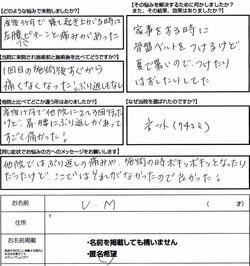 【どのような悩みで来院しましたか?】
産後3ヶ月で 寝て起きるときなど時に
左腰がピキーンと痛みがあった
【当院に来院されて施術前と施術後を比べてどうですか?】
1回目の施術後すぐから
痛くなくなった ぶり返しもなし
【他院と比べてどこか違う所はありましたか?】
産後1ヶ月で他院に2,3回行った
けど、肩・腰にぶり返しがあって
すごく痛かった!
【その悩みを解消するために何かしましたか?
また、その結果、効果はありましたか?】
家事をする時に
骨盤ベルトをつけるけど
夏で暑いので、つけたり
はずしたりしてた
【なぜ当院を選ばれたのですか?】
ネット(クチコミ)
【同じ症状でお悩みの方へのメッセージをお願いします】
他院ではぶり返しの痛みや、施術の時ボキッボキッとなったり
だったけど、ここではそれがなかったので良かった!
お名前
U.M
ご住所
お名前掲載
・名前を掲載しても構いません
・匿名希望